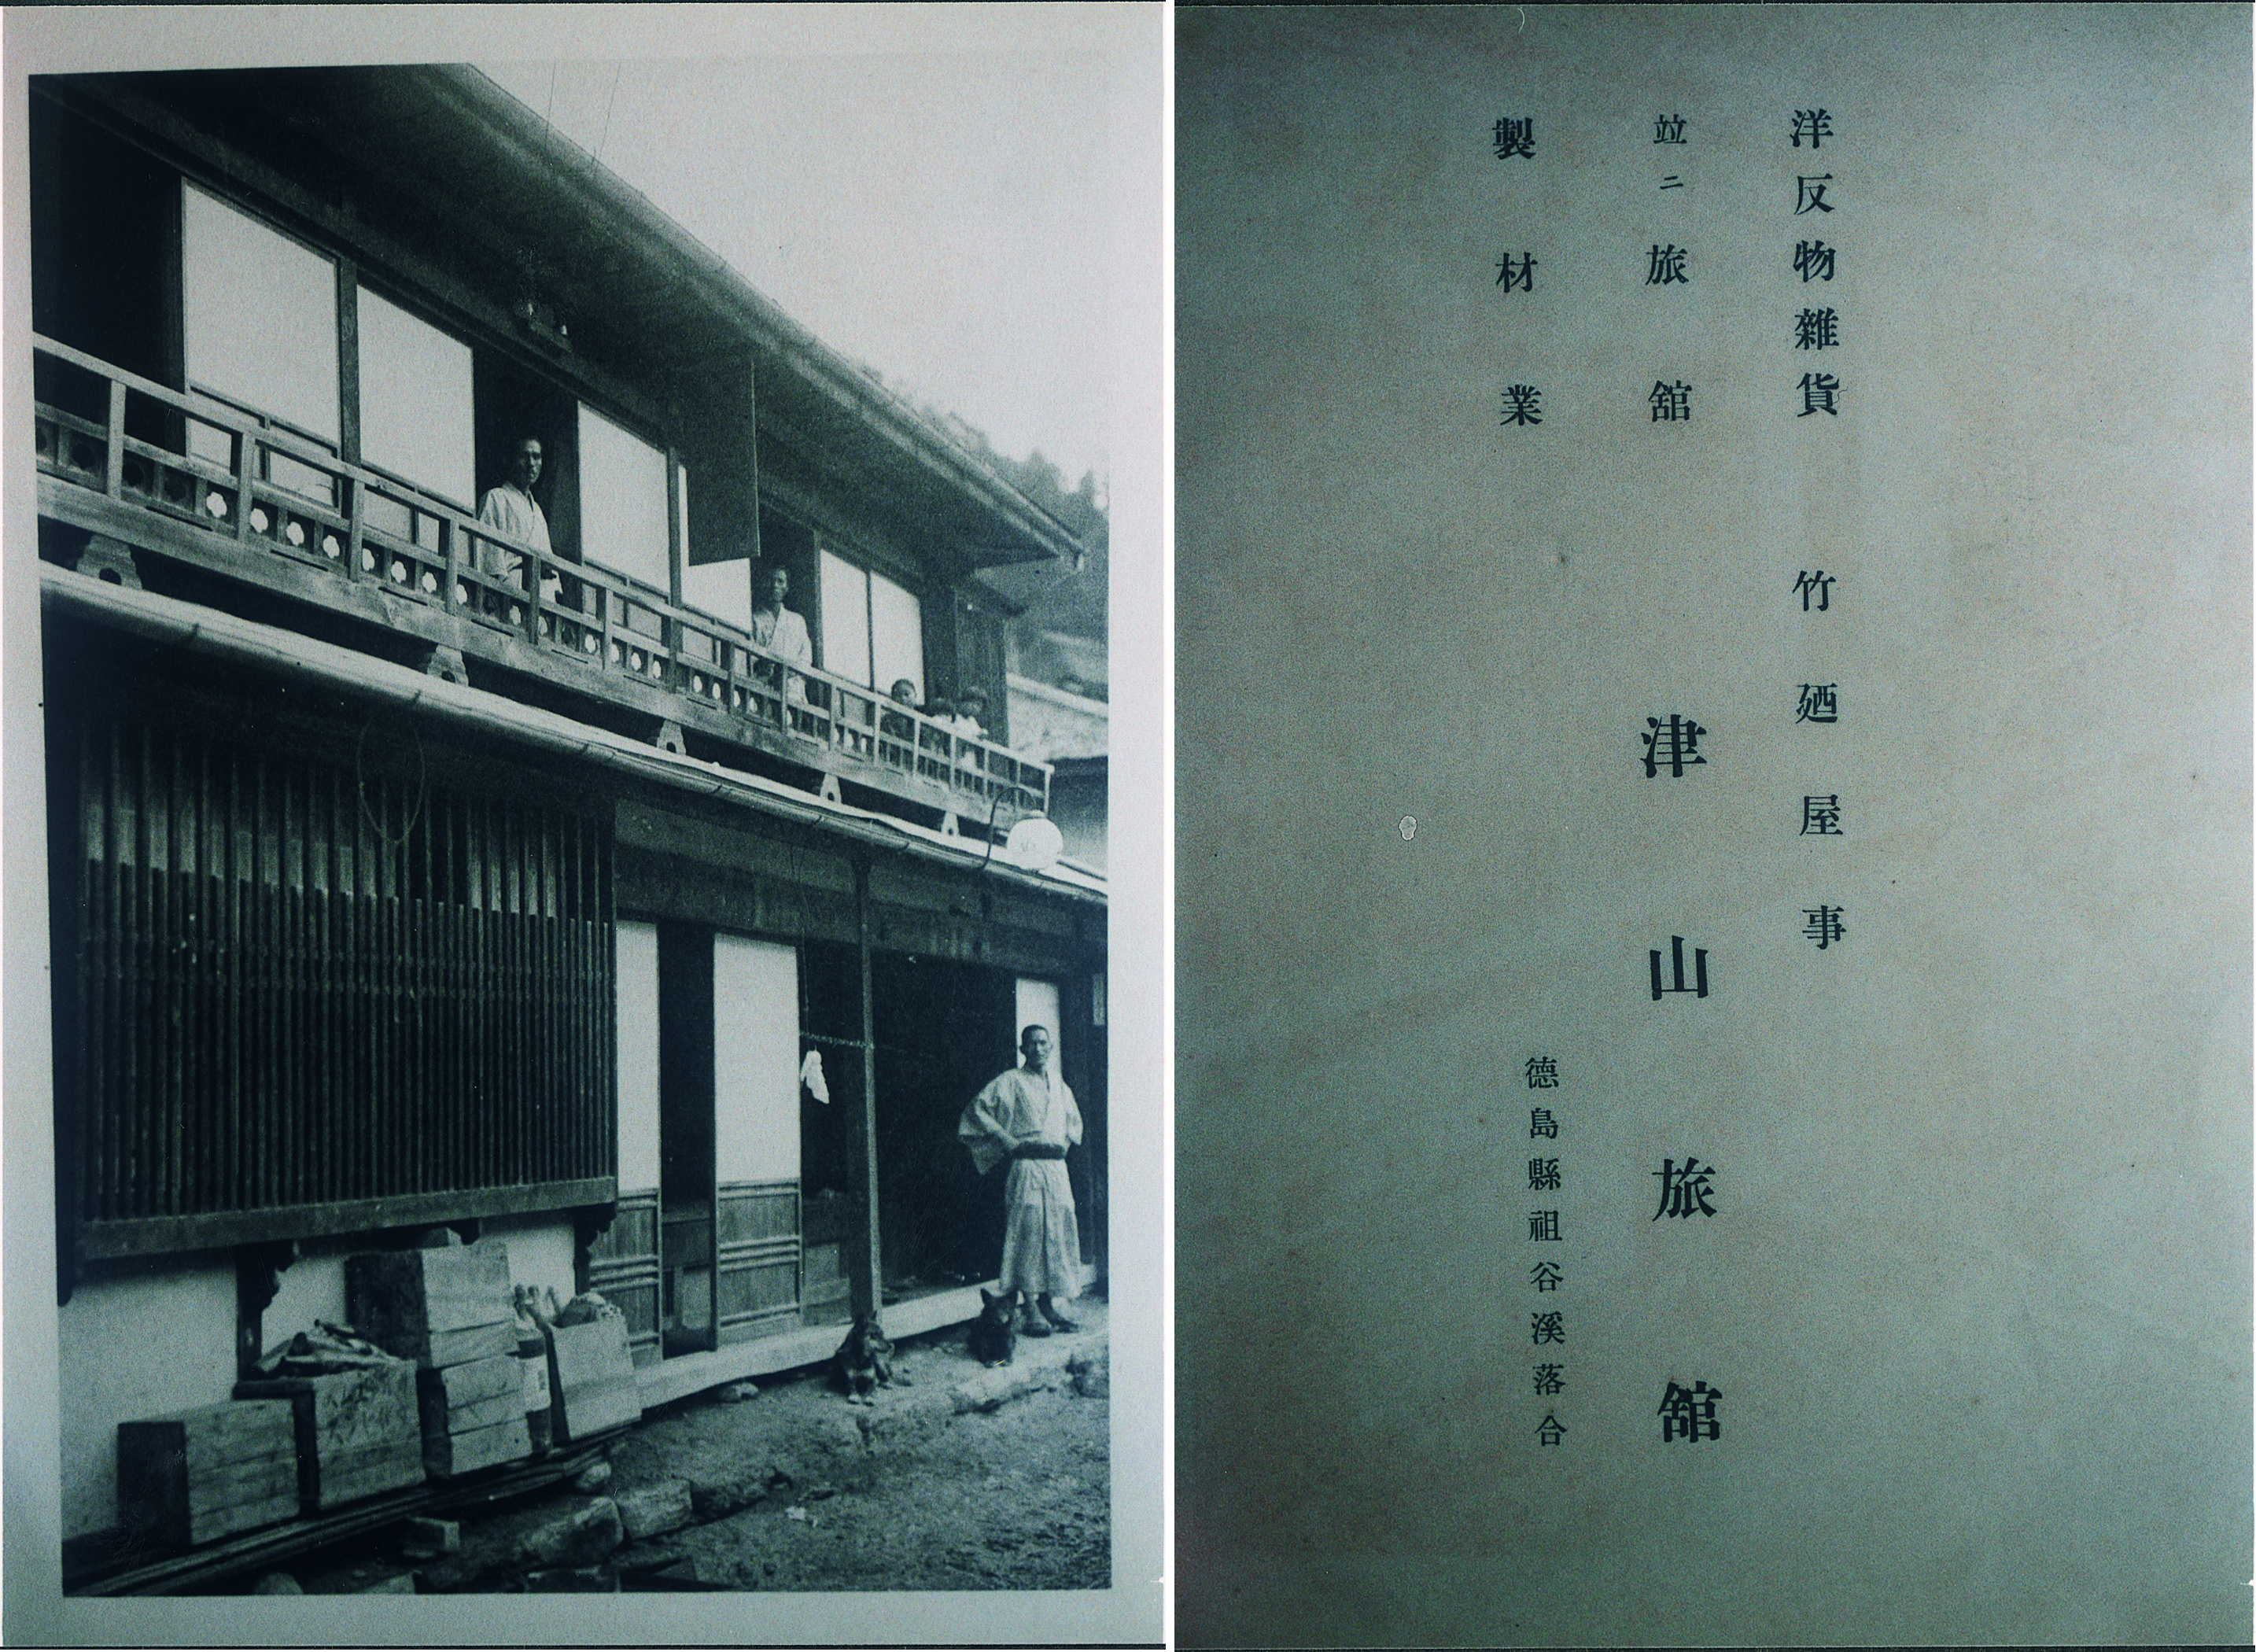 洋反物雜貨 竹廼屋事
竝ニ旅舘 津山旅舘
製材業
德島縣祖谷溪落合